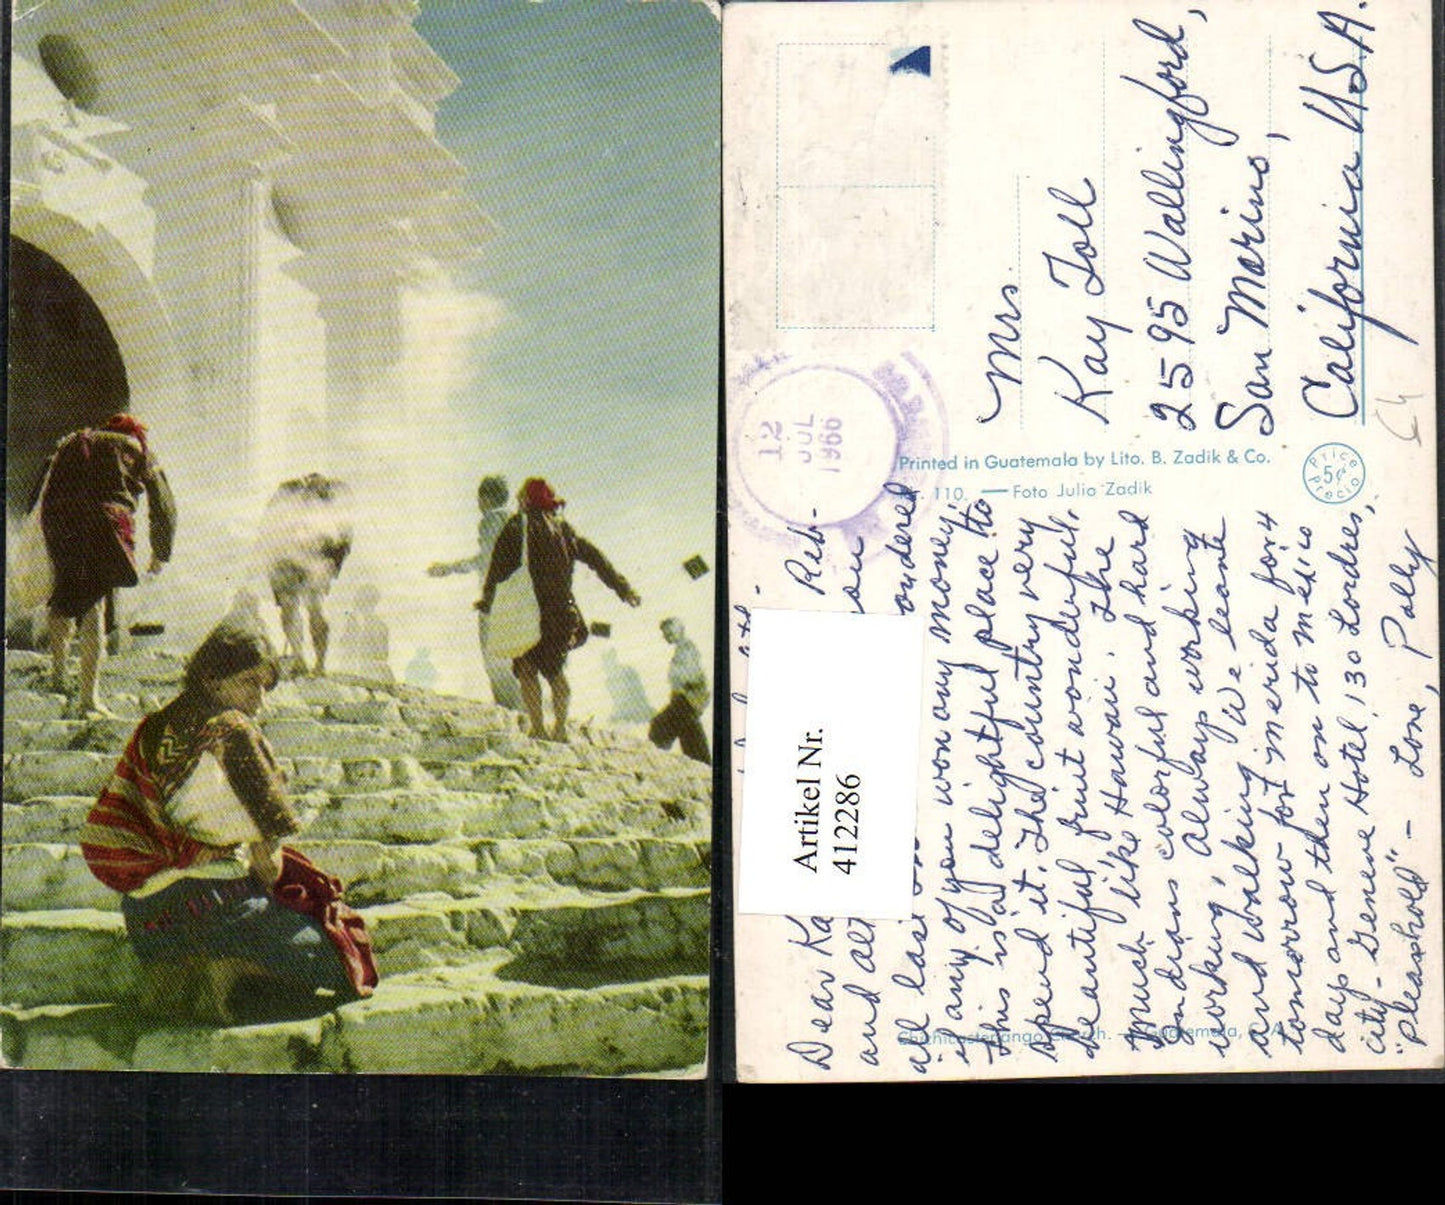 Dear Ka
and all
at last
ondered
if any of you won any money,
this is a delightful place to
spend it. The country very
beautiful, fruit wonderful,
much like Hawaii. The
Indians colorful and hard
working, always working
and walking. We leave
tomorrow for Merida for 4
days and then on to Mexico
city - Geneve Hotel, 130 Londres,
"pleashold" - Love, Polly
Mrs.
Kay Toll
2595 Wallingford,
San Marino,
California U.S.A.
12
JUL
1966
Printed in Guatemala by Lito. B. Zadik & Co.
110. — Foto Julio Zadik
Price
5¢
Precio
Chichicastenango Church. — Guatemala, C. A.
Artikel Nr.
412286